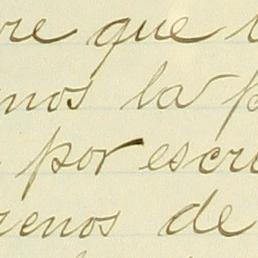 re que
nos la p
por escri
renos de